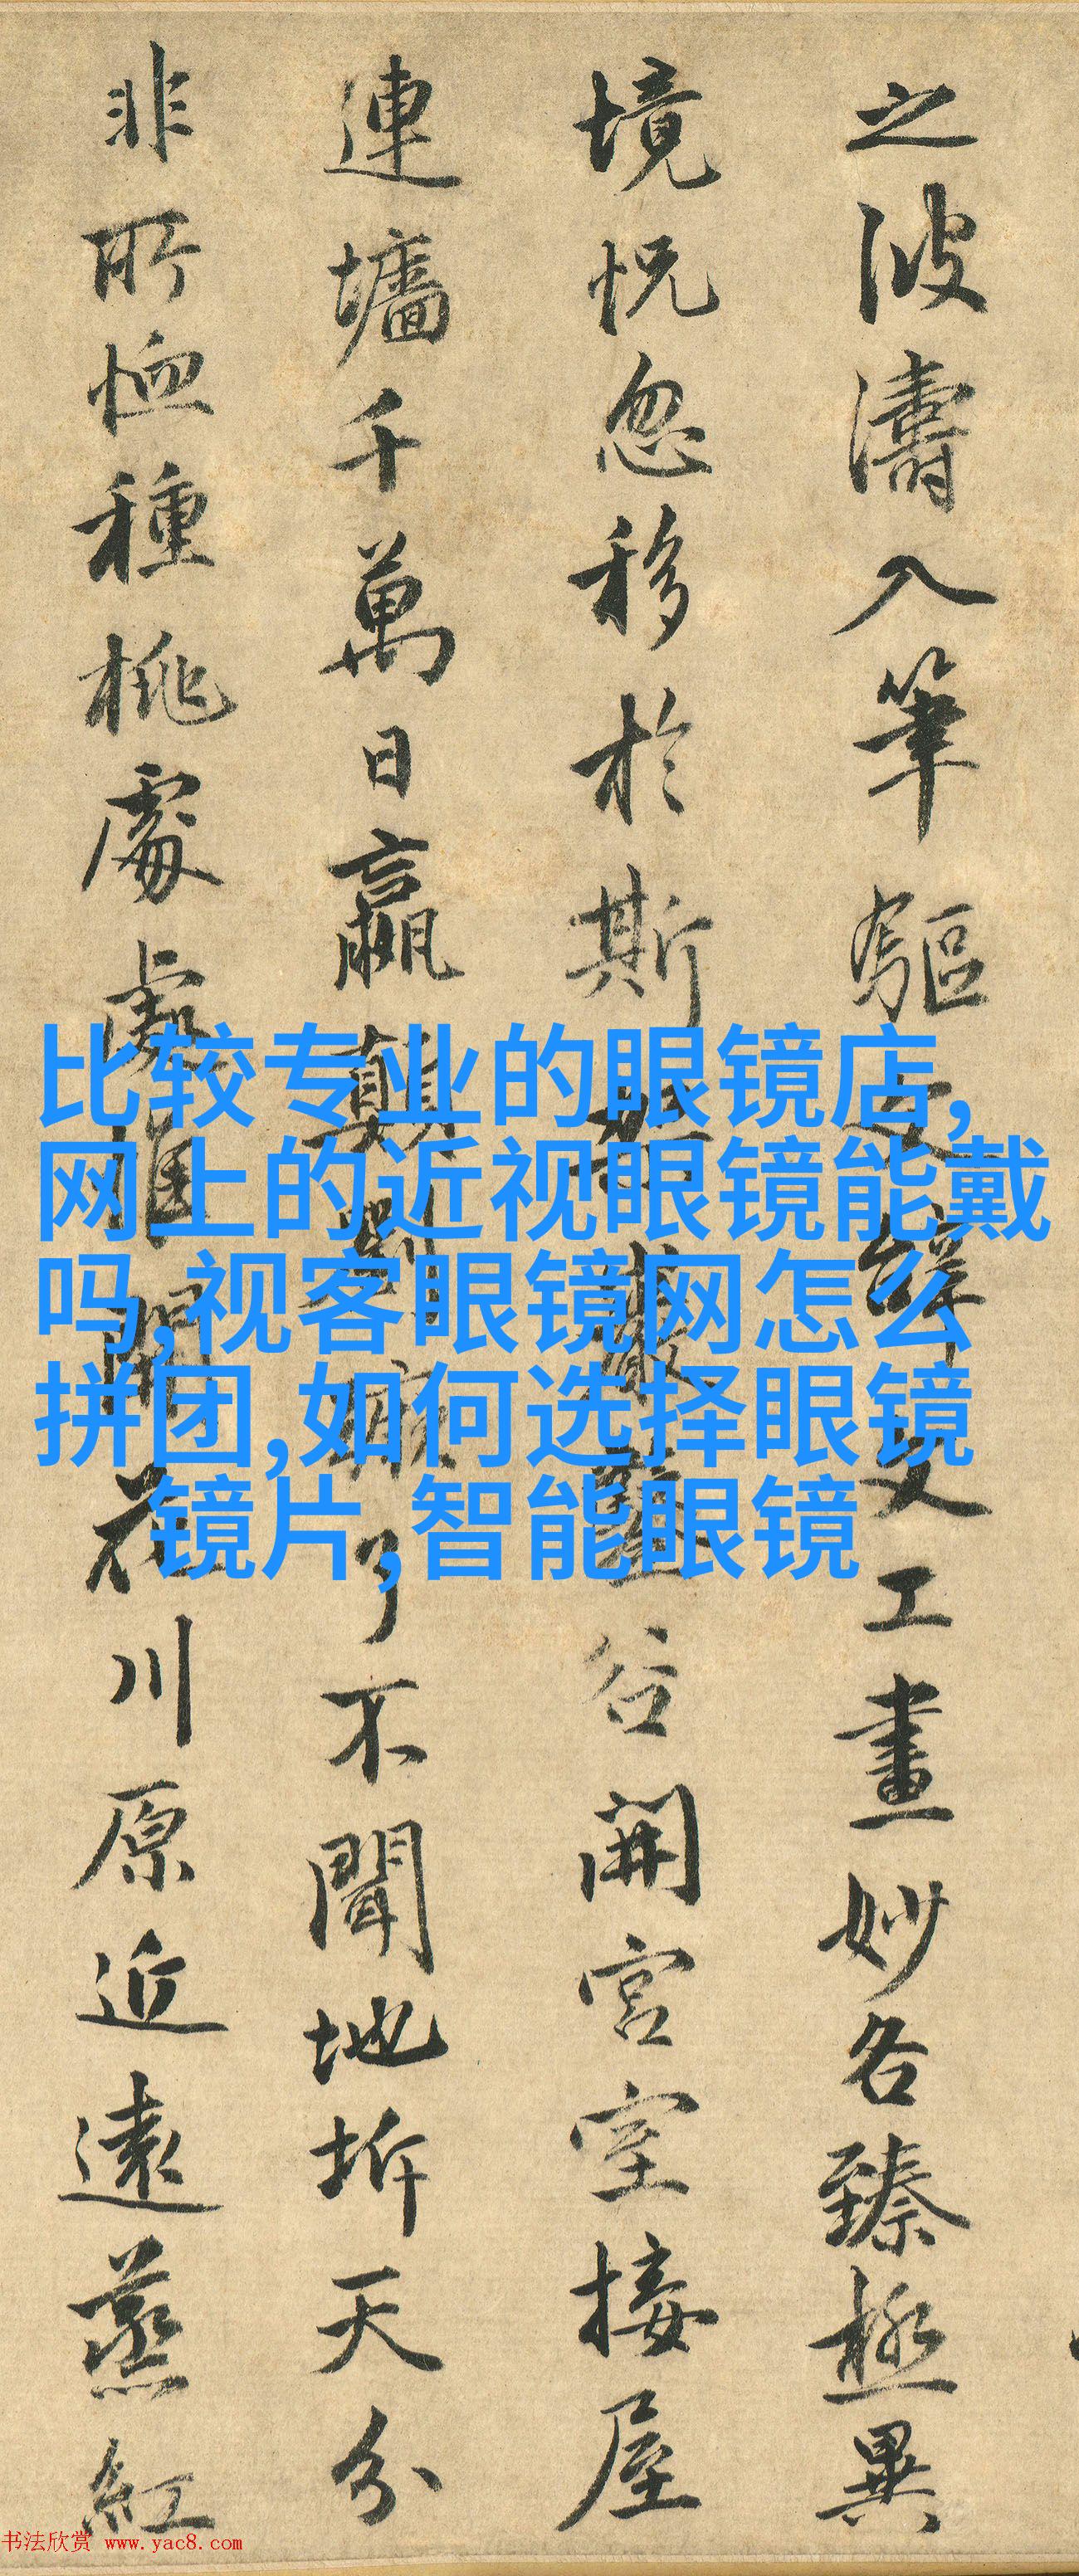 之波濤入筆驅文辭文工畫妙各臻極異
境怳忽移於斯架巖鑿谷開宮室接屋
連墻千萬日嬴顛劉蹶了不聞地坼天分
非所恤種桃處處惟開花川原近遠蒸紅
比较专业的眼镜店,
网上的近视眼镜能戴
吗,视客眼镜网怎么
拼团,如何选择眼镜
镜片,智能眼镜
书法欣赏 www.yac8.com